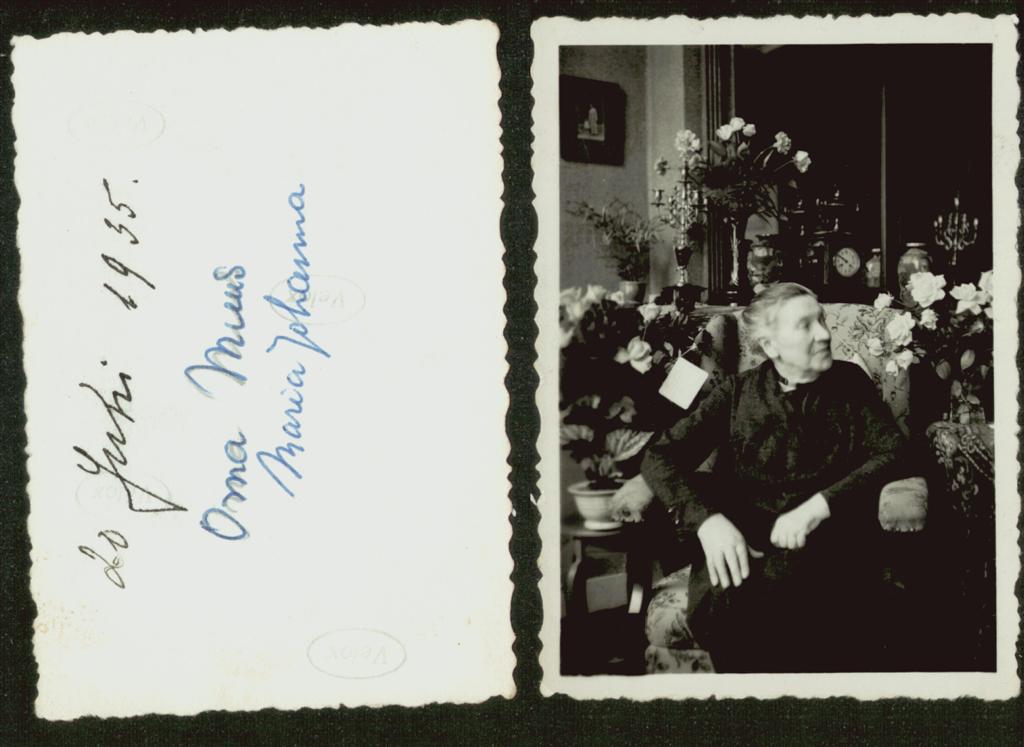 20 Juli 1935.
Oma Muus
Maria Johanna
Velox
Velox
Velox
Velox